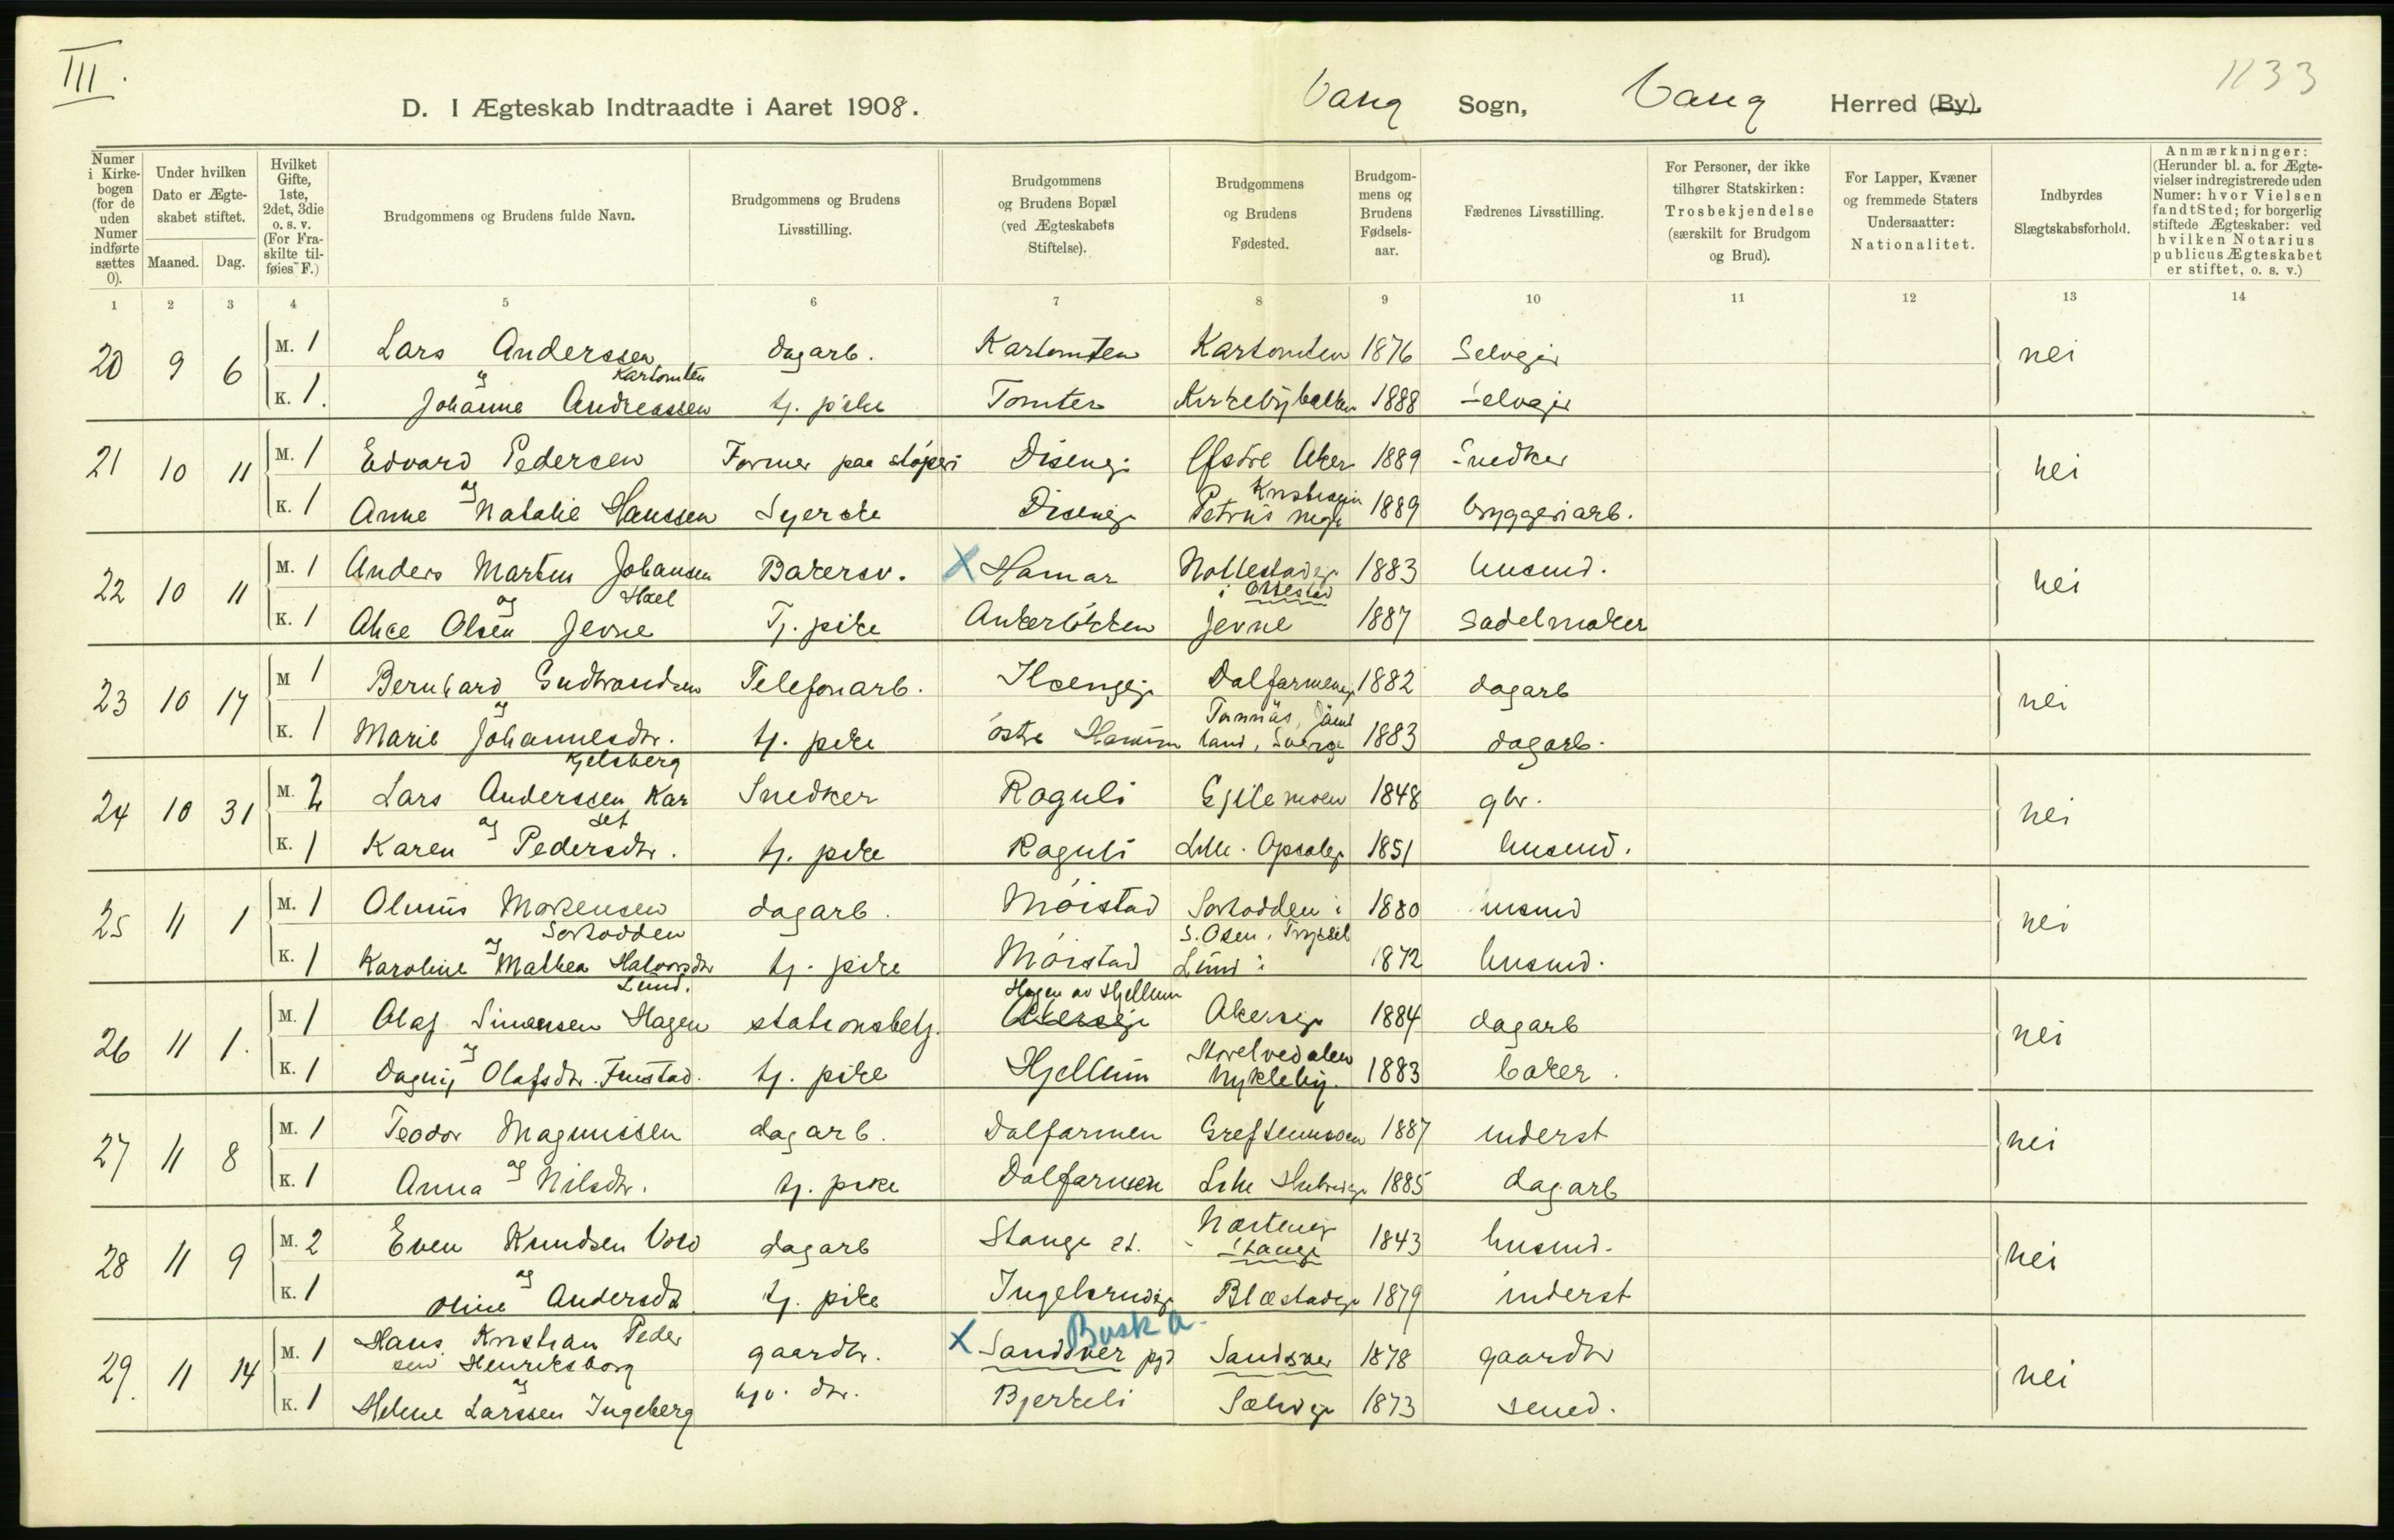 III.
1133
D. I Ægteskab Indtraadte i Aaret 1908. Vang Sogn, Vang Herred (By).
Numer i Kirkebogen (for de uden Numer indførte sættes 0).
Under hvilken Dato er Ægteskabet stiftet.
Maaned. Dag.
Hvilket Gifte, 1ste, 2det, 3die o. s. v. (For Fraskilte tilføies F.)
Brudgommens og Brudens fulde Navn.
Brudgommens og Brudens Livsstilling.
Brudgommens og Brudens Bopæl (ved Ægteskabets Stiftelse).
Brudgommens og Brudens Fødested.
Brudgommens og Brudens Fødselsaar.
Fædrenes Livsstilling.
For Personer, der ikke tilhører Statskirken: Trosbekjendelse (særskilt for Brudgom og Brud).
For Lapper, Kvæner og fremmede Staters Undersaatter: Nationalitet.
Indbyrdes Slægtskabsforhold.
Anmærkninger: (Herunder bl. a. for Ægtevielser indregistrerede uden Numer: hvor Vielsen fandt Sted; for borgerlig stiftede Ægteskaber: ved hvilken Notarius publicus Ægteskabet er stiftet, o. s. v.)
1 2 3 4 5 6 7 8 9 10 11 12 13 14
20 9 6 M. 1 Lars Anderssen Kartomten dagarb. Kartomten Kartomten 1876 Selveier nei
og
K. 1. Johanne Andreassen tj. pike Tomter Kirkebybakken 1888 Selveier
21 10 11 M. 1 Edvard Pedersen Former paa støperi Diseneje Østre Aker 1889 Snedker nei
og
K. 1 Anne Natalie Hanssen Syerske Diseneje Kristiania Petrus mgh 1889 bryggeriarb.
22 10 11 M. 1 Anders Martin Johansen Hæl Bakersv. X Hamar i Ottestad 1883 husmd. nei
og
K. 1 Alice Olsen Jevne Tj. pike Ankerløkken Jevne 1887 Sadelmaker
23 10 17 M 1 Bernhard Gudbrandsen Telefonarb. Ilsengeje Dalfarmeneje 1882 dagarb nei
og
K. 1 Marie Johannesdtr. tj. pike østre Tännäs, Jämtland, Sverge 1883 dagarb.
24 10 31 M. 2 Lars Anderssen Kjelsberg Snedker Roguli 1848 gbr. nei
og
K. 1 Karen Pedersdtr. tj. pike Roguli Lille-Opsaleje 1851 husmd.
25 11 1 M. 1 Olinus Mortensen Sortodden dagarb. Moistad Sortodden i S. Osen, Trysil 1880 husmd nei
og
K. 1 Karoline Mathea Halvorsdtr Lund. tj. pike Moistad Lund i 1872 husmd.
26 11 1. M. 1 Olaf Simensen Hagen stationsbetj. Hagen av Hjellum Akerseje Akerseje 1884 dagarb nei
og
K. 1 Dagny Olafsdtr. Finstad. tj. pike Hjellum Storelvedalen Nykleby. 1883 baker.
27 11 8 M. 1 Teodor Magnussen dagarb. Dalfarmen 1887 inderst nei
og
K. 1 Anna Nilsdtr. tj. pike Dalfarmen Lille 1885 dagarb
28 11 9 M. 2 Even Knudsen Vold dagarb Stange st. Stange 1843 husmd. nei
og
K. 1 Oline Andersdtr tj. pike Ingelsrudeje Blæstadeje 1879 inderst
29. 11 14 M. 1 Hans Kristian Pedersen Henriksborg gaardbr. X Sandsver pgd Busk a. Sandsver 1878 gaardbr nei
og
K. 1 Helene Larssen Ingeberg Bjerkeli Sælideje 1873 smed.